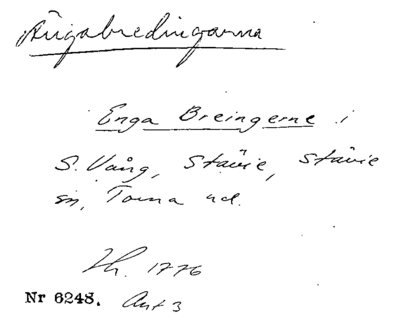 Ängabredingarna
Enga Breingerne i
S. Vång, Stävie, Stävie
sn, Torna hd.
Lh. 1776
Nr 6248. Akt 3